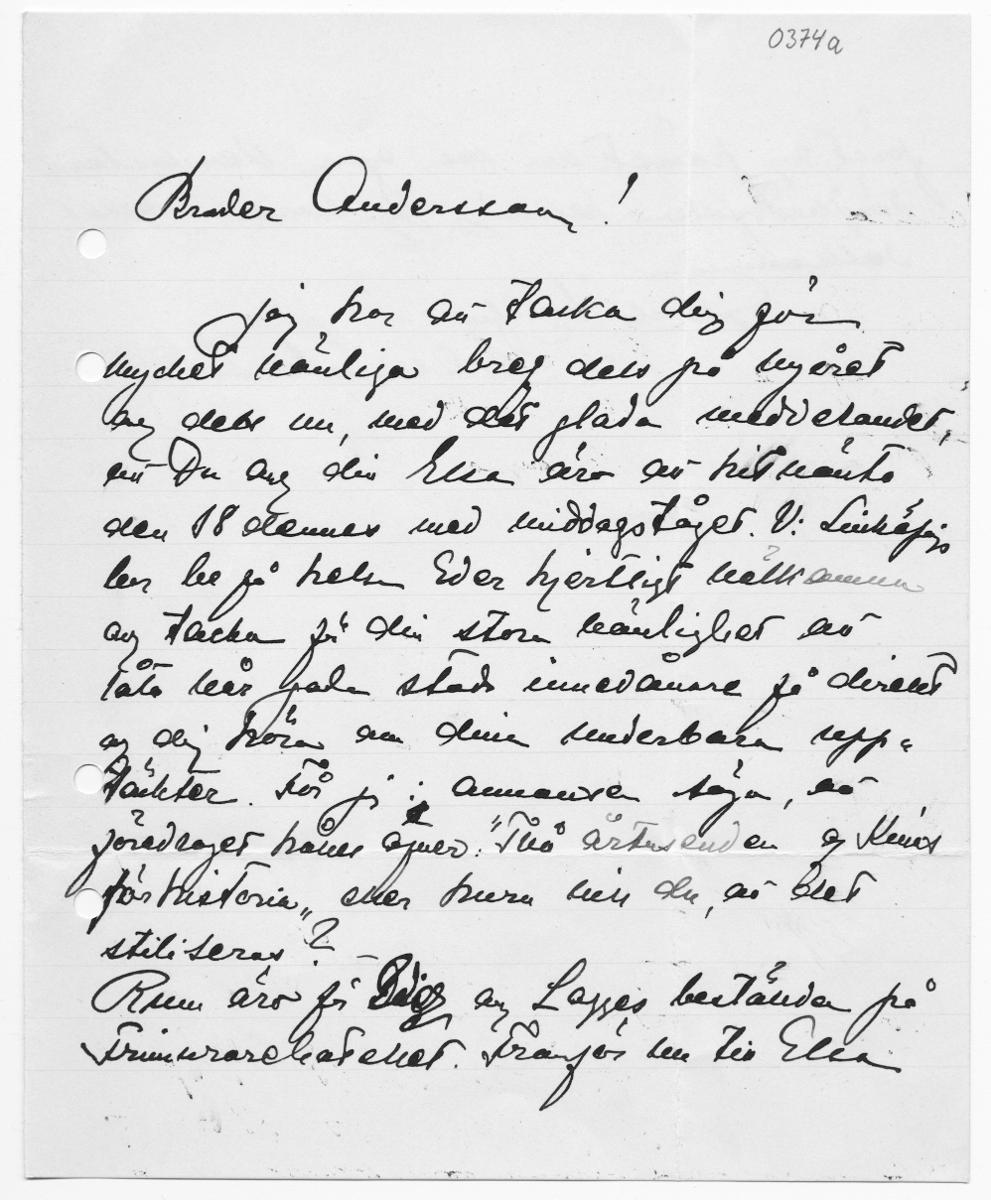 0374a
Broder Andersson!
Jag har att tacka dig för
mycket vänliga bref dels på nyåret
og dels nu, med det glada meddelandet,
att Du og din Elsa äro att hitvänta
den 18 dennes med middagståget. Vi Linköpings
bor be få helsa Eder hjertligt välkomna
og tacka för din stora vänlighet att
låta vår goda stads innevånare få direkt
af dig höra om dina underbara upp-
täkter. Får jag i annonsen säga, att
föredraget hålles öfver: "Två årtusenden af Kinas
förhistoria", eller huru vill du, att det
stiliseras? –
Rum äro för Dig og Lagges beställda på
Frimurarehotellet. Framför nu till Elsa